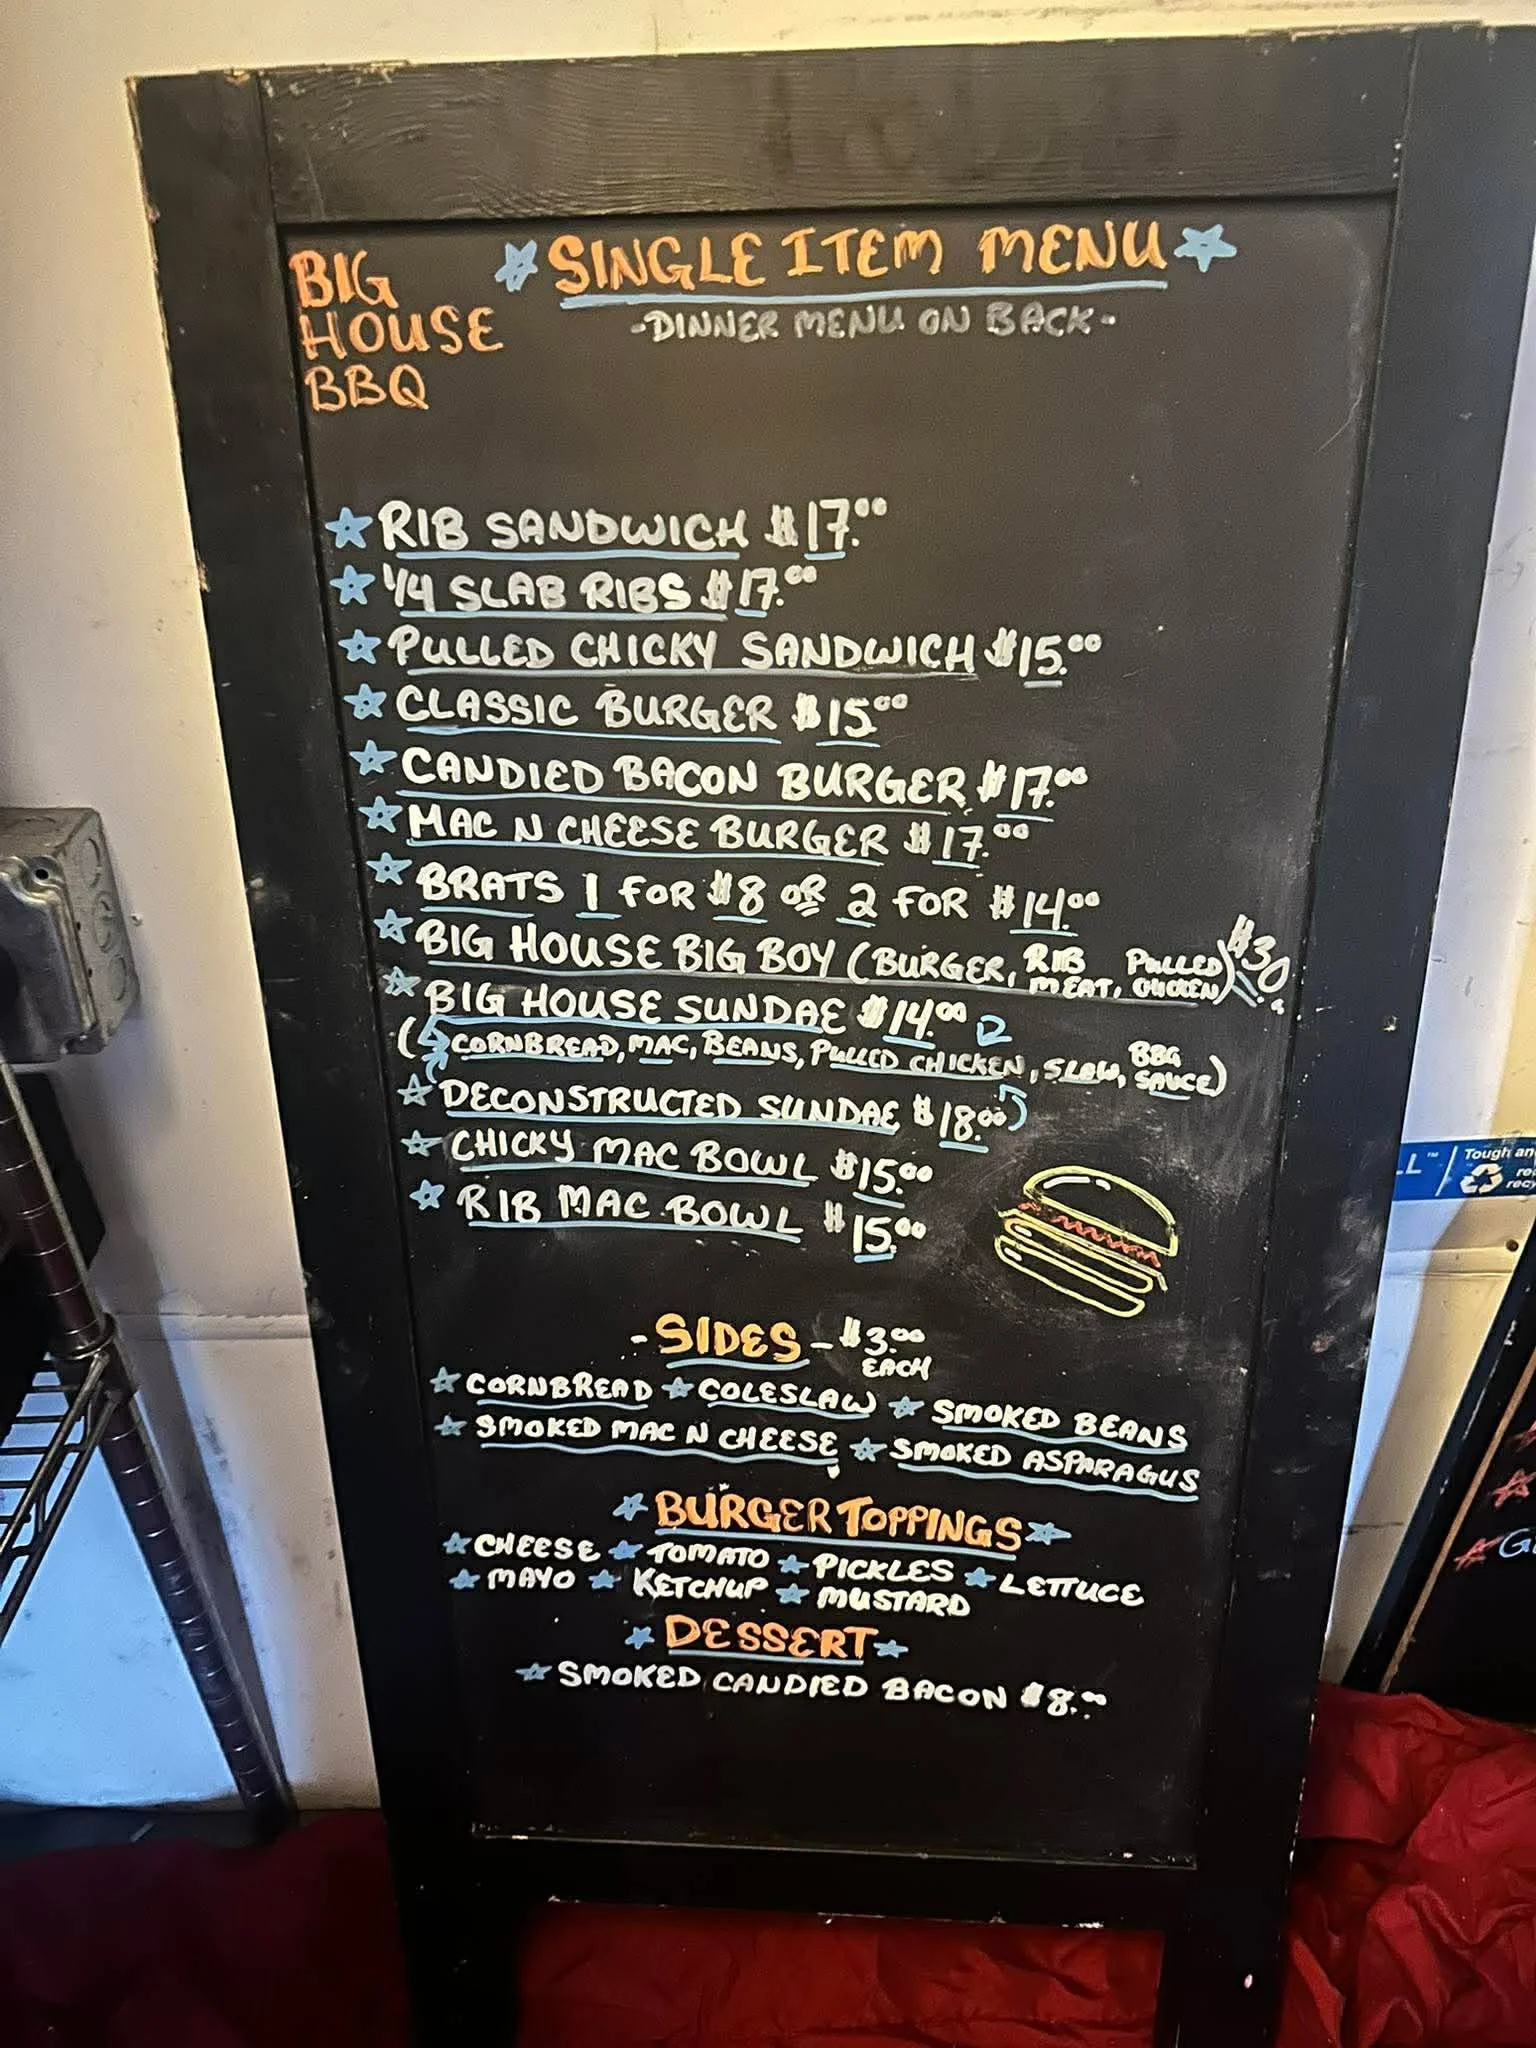 BIG
HOUSE
BBQ
SINGLE ITEM MENU
-DINNER MENU ON BACK-
RIB SANDWICH $17.00
1/4 SLAB RIBS $17.00
PULLED CHICKY SANDWICH $15.00
CLASSIC BURGER $15.00
CANDIED BACON BURGER $17.00
MAC N CHEESE BURGER $17.00
BRATS 1 FOR $8 OR 2 FOR $14.00
BIG HOUSE BIG BOY (BURGER, RIB MEAT, PULLED CHICKEN) $30
BIG HOUSE SUNDAE $14.00
(CORNBREAD, MAC, BEANS, PULLED CHICKEN, SLAW, BBG SAUCE)
DECONSTRUCTED SUNDAE $18.00
CHICKY MAC BOWL $15.00
RIB MAC BOWL $15.00
-SIDES-$3.00
EACH
CORNBREAD COLESLAW SMOKED BEANS
SMOKED MAC N CHEESE SMOKED ASPARAGUS
BURGER TOPPINGS
CHEESE TOMATO PICKLES LETTUCE
MAYO KETCHUP MUSTARD
DESSERT
SMOKED CANDIED BACON $8.00
LL™
Tough an